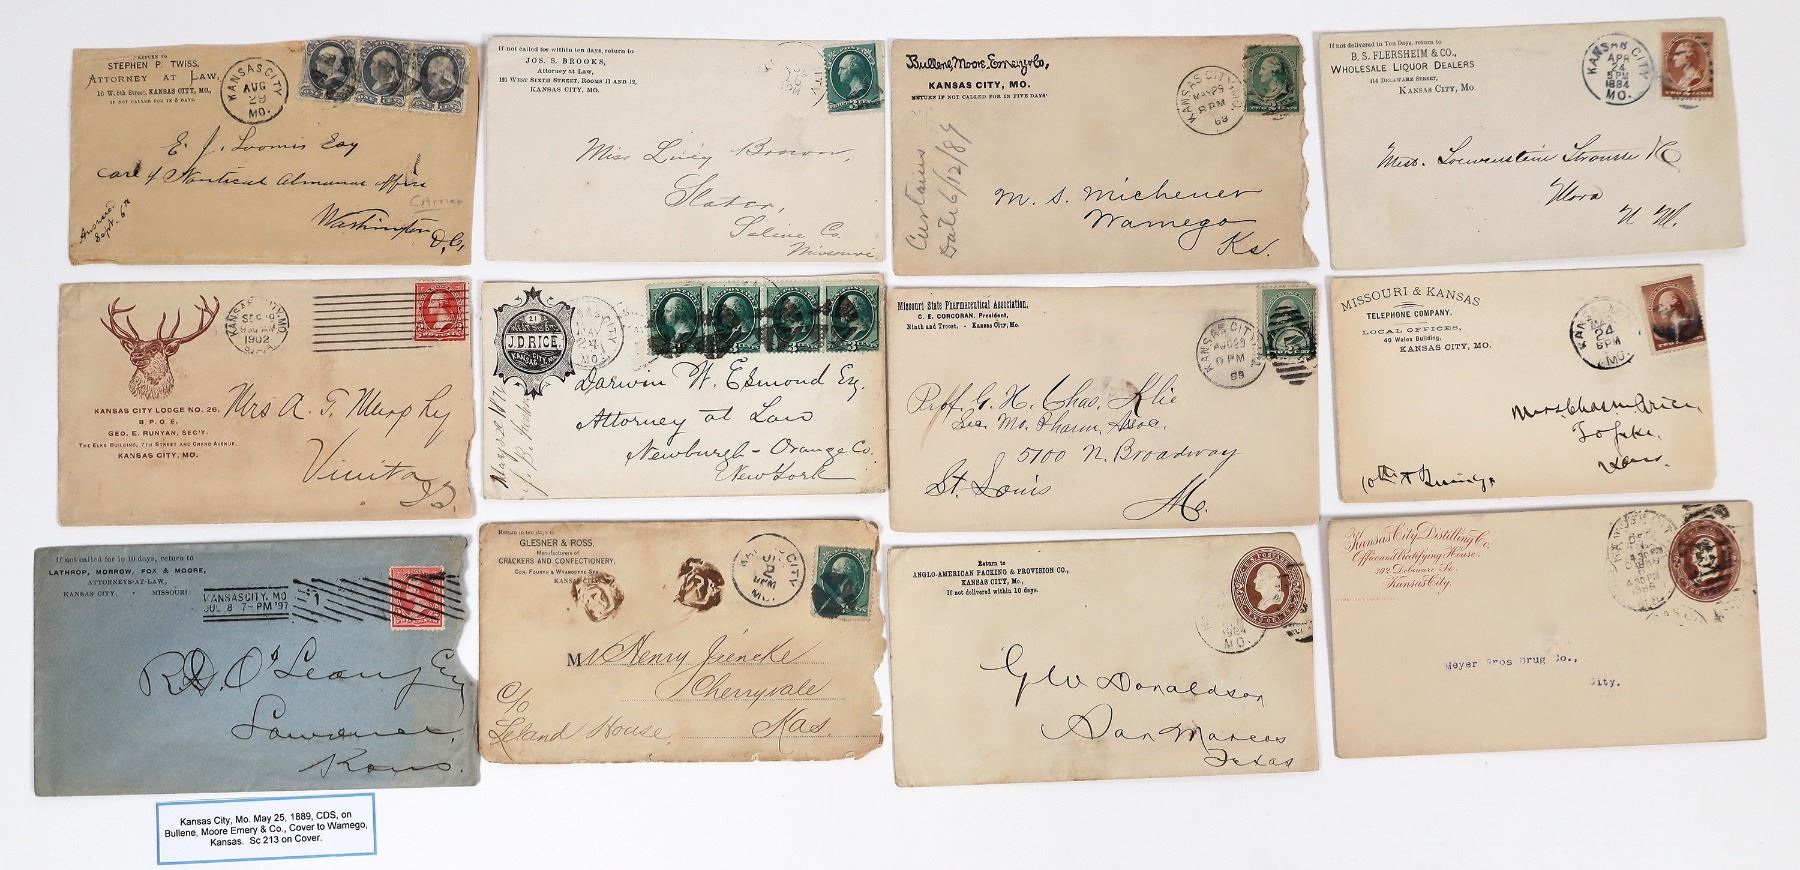 RETURN TO
STEPHEN P. TWISS,
ATTORNEY AT LAW,
16 W. 5th Street, KANSAS CITY, MO.,
IF NOT CALLED FOR IN 5 DAYS.
KANSAS CITY
AUG
29
MO.
E. J. Loomis Esq
Care of Nautical Almanac Office
Carrier
Washington
D.C.
Answered
Sept. 6th
If not called for within ten days, return to
JOS. S. BROOKS,
Attorney at Law,
121 WEST SIXTH STREET, ROOMS 11 AND 12,
KANSAS CITY, MO.
Miss Lucy Brown,
Slater,
Saline Co.
Missouri
Bullene, Moore, Emery & Co,
KANSAS CITY, MO.
RETURN IF NOT CALLED FOR IN FIVE DAYS
KANSAS CITY
8 PM
M. S. Michener
Wamego
Ks.
Curtains
Date 6/12/89
If not delivered in Ten Days, return to
B. S. FLERSHEIM & CO.,
WHOLESALE LIQUOR DEALERS
114 DELAWARE STREET,
KANSAS CITY, MO.
KANSAS CITY
APR
24
5 PM
1884
MO.
Mess. Loewenstein Strousse & Co
Mora
N. M.
KANSAS CITY, MO.
9 30 AM
1902
KANSAS CITY LODGE NO. 26,
B. P. O. E.
GEO. E. RUNYAN, SEC'Y.
THE ELKS BUILDING, 7TH STREET AND GRAND AVENUE.
KANSAS CITY, MO.
Mrs A. T. Murphy
Vinita
I.T.
21
WEST 5th ST.
J.D. RICE,
KANSAS CITY, MO.
KANSAS CITY
MAY
24
MO.
Darwin W. Esmond Esq.
Attorney at Law
Newburgh - Orange Co.
New York
Missouri State Pharmaceutical Association,
C. E. CORCORAN, President,
Ninth and Troost. - Kansas City, Mo.
KANSAS CITY
AUG 29
PM
89
Prof. G. H. Chas. Klie
Sec. Mo. Pharm. Assoc.
5100 N. Broadway
St. Louis
Mo.
MISSOURI & KANSAS
TELEPHONE COMPANY.
LOCAL OFFICES,
40 Wales Building,
KANSAS CITY, MO.
24
5 PM
MO.
Topeka,
Kans.
If not called for in 10 days, return to
LATHROP, MORROW, FOX & MOORE,
ATTORNEYS-AT-LAW,
KANSAS CITY, - MISSOURI.
KANSAS CITY, MO
JUL 8 7-PM '97
1
O'Leary Esq
Lawrence,
Kans.
Return in ten days to
GLESNER & ROSS,
Manufacturers of
CRACKERS AND CONFECTIONERY,
COR. FOURTH & WYANDOTTE STS.
KANSAS CITY
Mr Henry Jiencke
Cherryvale
C/o
Leland House, Kas.
Return to
ANGLO-AMERICAN PACKING & PROVISION CO.,
KANSAS CITY, Mo.,
If not delivered within 10 days.
1884
MO.
G W Donaldson
San Marcos
Texas
Kansas City Distilling Co.
Office and Rectifying House.
302 Delaware St.
Kansas City.
Meyer Bros Drug Co.,
City.
Kansas City, Mo. May 25, 1889, CDS, on
Bullene, Moore Emery & Co., Cover to Wamego,
Kansas. Sc 213 on Cover.